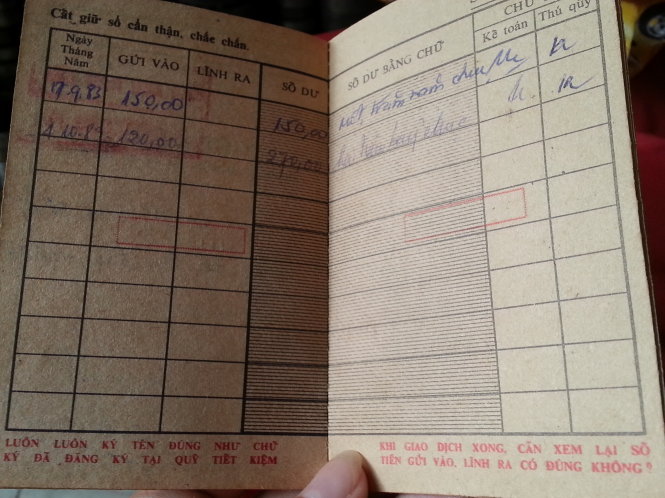 Cất giữ sổ cẩn thận, chắc chắn.
Ngày Tháng Năm GỬI VÀO LĨNH RA SỐ DƯ SỐ DƯ BẰNG CHỮ Kế toán Thủ quỹ
CHỮ
17.9.83 150,00 150,00 một trăm năm chục
120,00 270,00 hai trăm bảy chục
LUÔN LUÔN KÝ TÊN ĐÚNG NHƯ CHỮ
KÝ ĐÃ ĐĂNG KÝ TẠI QUỸ TIẾT KIỆM
KHI GIAO DỊCH XONG, CẦN XEM LẠI SỐ
TIỀN GỬI VÀO, LĨNH RA CÓ ĐÚNG KHÔNG?